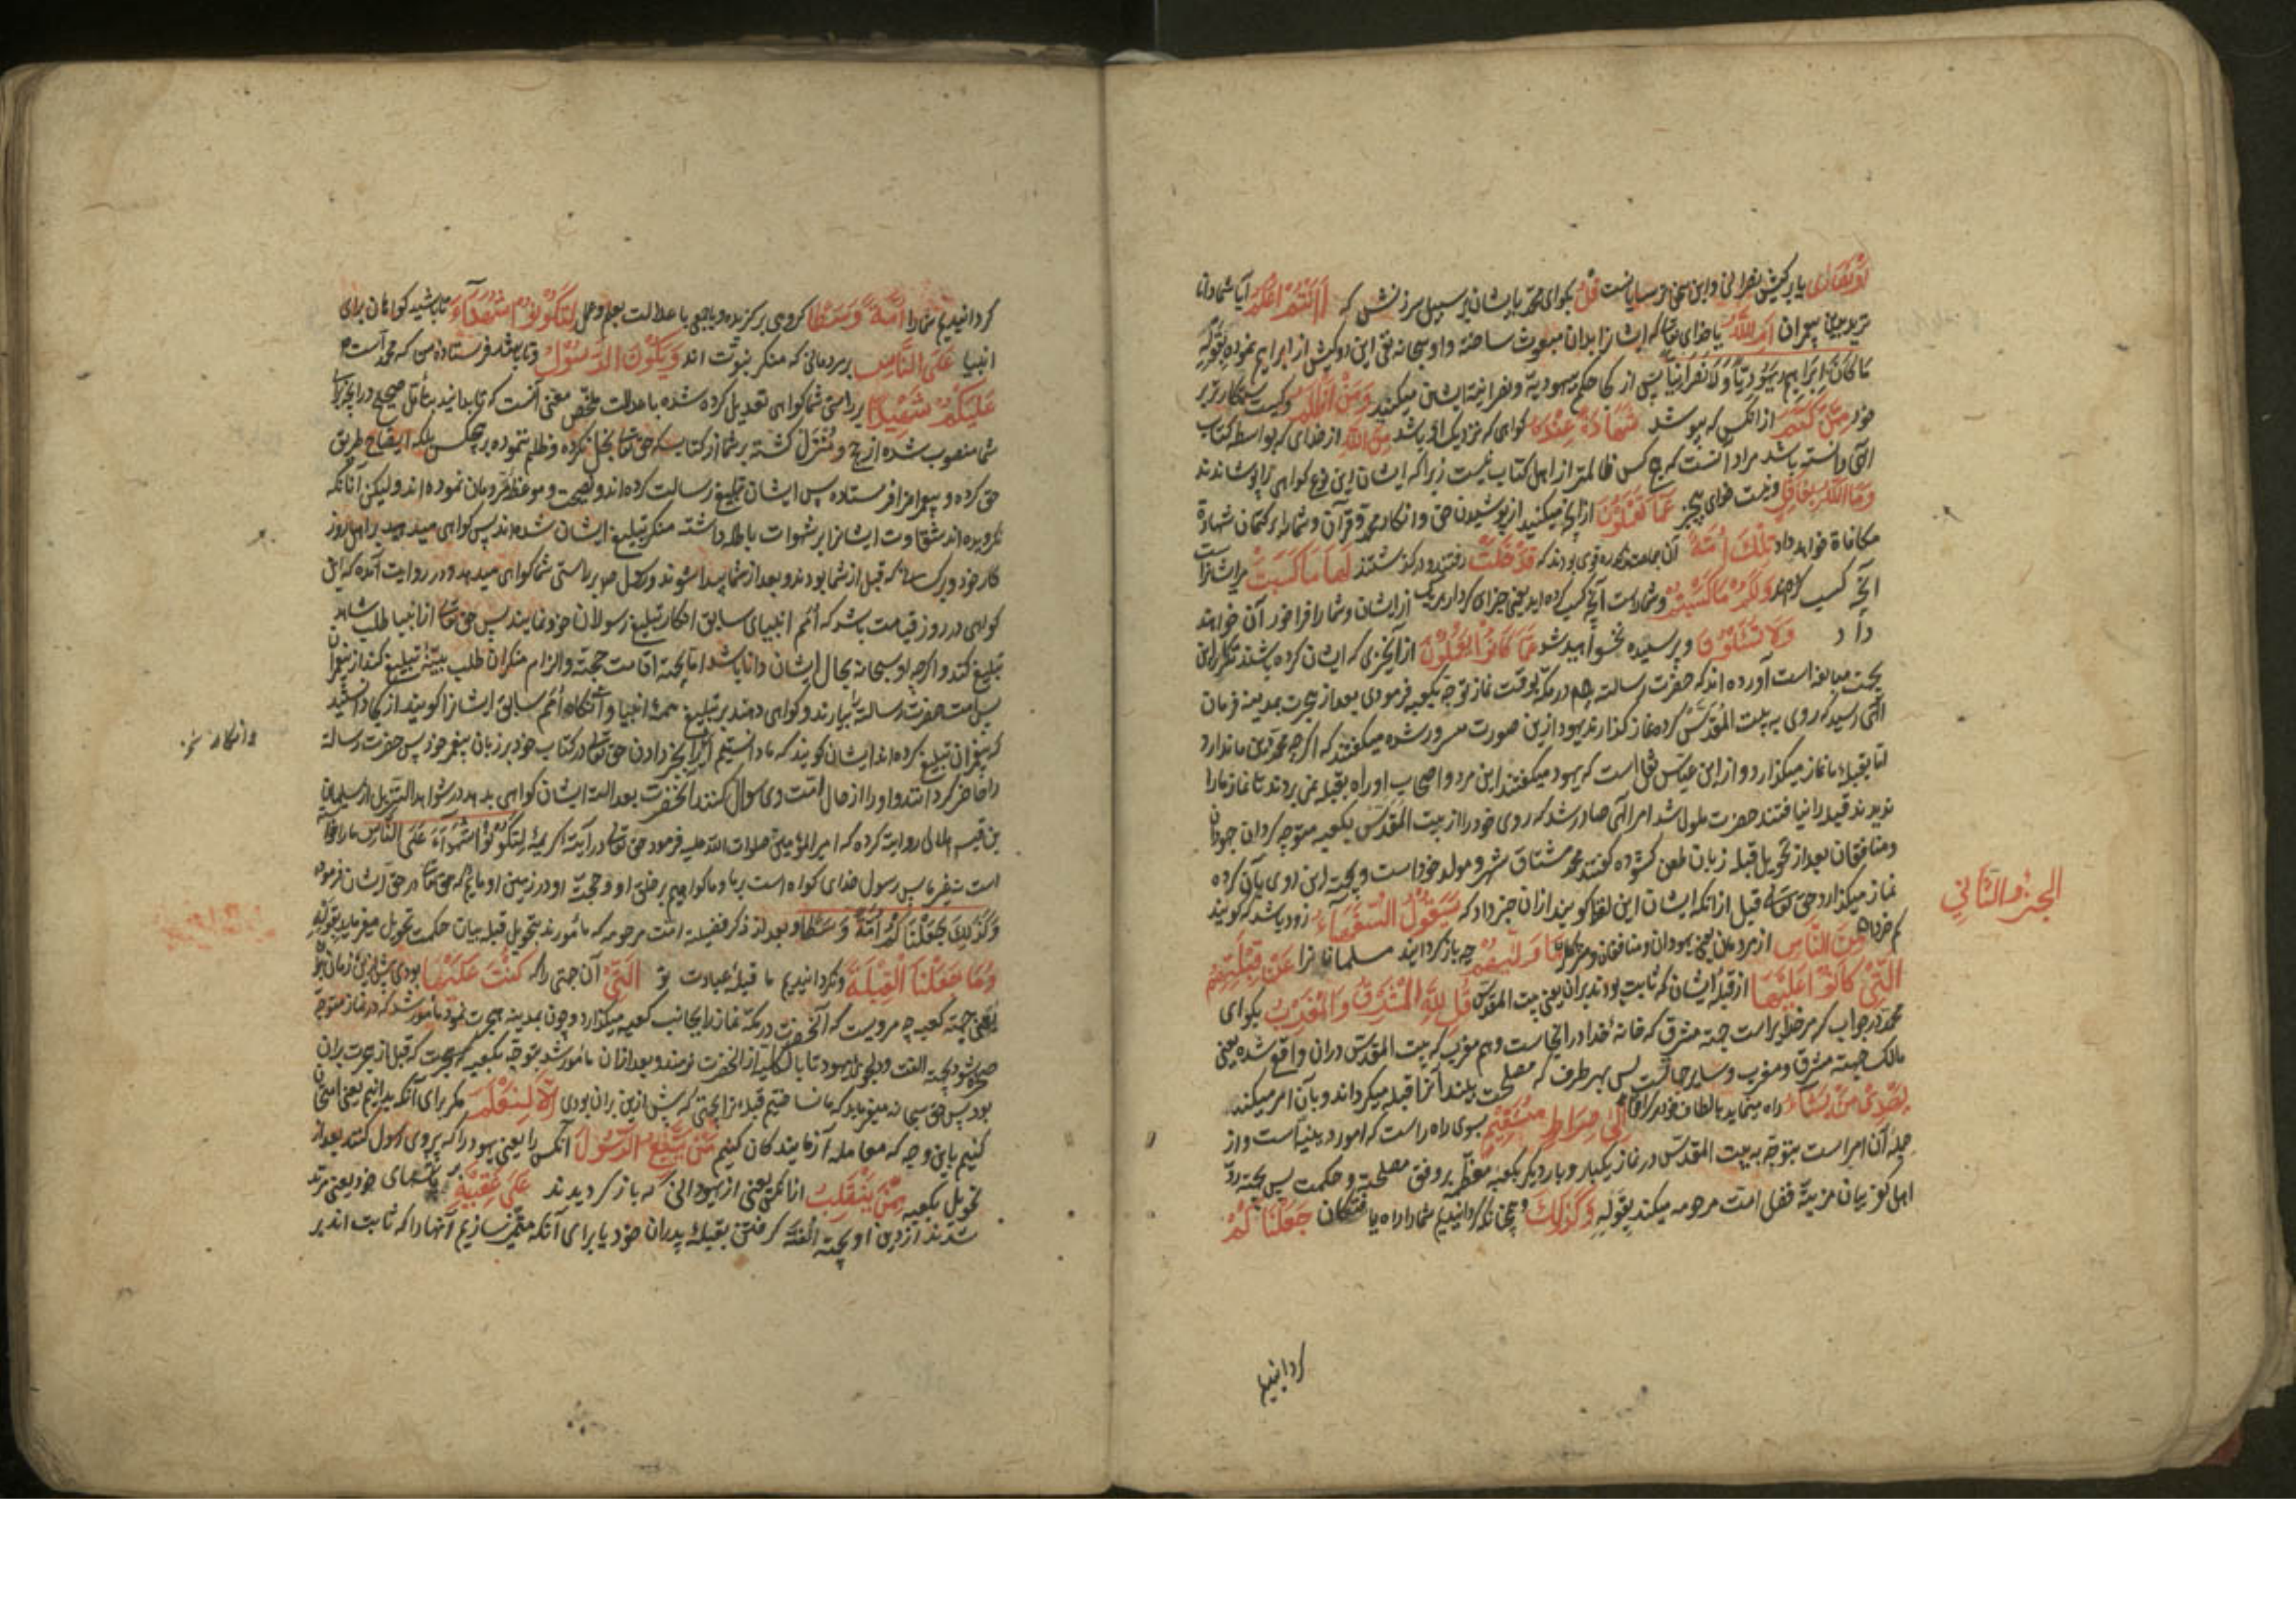 اَوْ نَصَارٰی یا بر کیش نصرانی و این سخن ترسایانست قُلْ بگو ای محمد بایشان بر سبیل سرزنش که ءَاَنْتُمْ اَعْلَمُ آیا شما دانا
ترید بدین پیغمبران اَمِ اللّٰهُ یا خدای تعالی که ایشانرا بدان مبعوث ساخته و او سبحانه نفی این دو کیش از ابراهیم نموده بقوله
مَا كَانَ اِبْرَاهِيمُ يَهُودِيًّا وَلَا نَصْرَانِيًّا پس از کجا حکم بیهودیة و نصرانیة ایشان میکنید وَمَنْ اَظْلَمُ و کیست ستمکارتر بر
خود مِمَّنْ كَتَمَ از آنکس که بپوشد شَهَادَةً عِنْدَهُ گواهی که نزدیک او باشد مِنَ اللّٰهِ از خدای که بواسطه کتاب
الهی دانسته باشد مراد آنست که هیچ کس ظالمتر از اهل کتاب نیست زیرا که ایشان این نوع گواهی را پوشاندند
وَمَا اللّٰهُ بِغَافِلٍ و نیست خدای بیخبر عَمَّا تَعْمَلُونَ از آنچه میکنید از پوشیدن حق و انکار محمد و قرآن و شما را بر کتمان شهادة
مکافاة خواهد داد تِلْكَ اُمَّةٌ آن جماعت مذکوره قومی بودند که قَدْ خَلَتْ رفتند و در گذشتند لَهَا مَا كَسَبَتْ مر ایشانراست
آنچه کسب کردند وَلَكُمْ مَا كَسَبْتُمْ و شما راست آنچه کسب کرده اید یعنی جزای کردار هر یک از ایشان و شما را فراخور آن خواهند
داد وَلَا تُسْئَلُونَ و پرسیده نخواهید شد عَمَّا كَانُوا يَعْمَلُونَ از آنچیزی که ایشان کرده باشند تکرار این
بجهت مبالغه است آورده اند که حضرت رسالة در مکه بوقت نماز توجه بکعبه فرمودی بعد از هجرت بمدینه فرمان
الهی رسید که روی به بیت المقدس کرده نماز گذارند یهود ازین صورت مسرور شده میگفتند که اگر چه محمد دین ما ندارد
امّا بقبله ما نماز میگذارد و از ابن عباس نقل است که یهود میگفتند این مرد و اصحاب او راه بقبله نمی بردند تا نماز ما را
ندیدند قبله را نیافتند حضرت ملول شد امر الهی صادر شد که روی خود را از بیت المقدس بکعبه متوجه گردان جهودان
و منافقان بعد از تحویل قبله زبان طعن گشوده گفتند محمد مشتاق شهر و مولد خود است و بجهة این روی بآن کرده
نماز میگذارد حق تعالی قبل از آنکه ایشان این لفظ گویند از آن خبر داد که سَيَقُولُ السُّفَهَآءُ زود باشد که گویند
کم خردان مِنَ النَّاسِ از مردمان یعنی یهودان و منافقان و مشرکان مَا وَلّٰيهُمْ چه باز گردانید مسلمانانرا عَنْ قِبْلَتِهِمُ
الَّتِي كَانُوا عَلَيْهَا از قبلهٔ ایشان که ثابت بودند بر آن یعنی بیت المقدس قُلْ لِلّٰهِ الْمَشْرِقُ وَالْمَغْرِبُ بگو ای
محمد در جواب که مر خدایراست جهة مشرق که خانهٔ خدا در آنجاست و هم مغرب که بیت المقدس در آن واقع شده یعنی
مالک جهة مشرق و مغرب و سایر جهاتست پس بهر طرف که مصلحت بیند آنرا قبله میگرداند و بآن امر میکند
يَهْدِي مَنْ يَشَآءُ راه مینماید بالطاف خود هر کرا خواهد اِلٰى صِرَاطٍ مُسْتَقِيمٍ بسوی راه راست که امور دینیه است و از
جملهٔ آن امر است بتوجه به بیت المقدس در نماز یکبار و بار دیگر بکعبه معظمه بر وفق مصلحة و حکمت پس بجهة ردّ
اهل کفر بیان مزیت فضل امت مرحومه میکند بقوله وَكَذٰلِكَ و همچنانکه گردانیدیم شما را راه یافتگان جَعَلْنَاكُمْ
الجزء الثاني
گردانیدیم
گردانیدیم شما را اُمَّةً وَسَطًا گروهی برگزیده و یا جمعی با عدالت بعلم و عمل لِتَكُونُوا شُهَدَآءَ تا باشید گواهان برای
انبیا عَلَى النَّاسِ بر مردمانی که منکر نبوت اند وَيَكُونَ الرَّسُولُ و تا باشد فرستادهٔ من که محمد است
عَلَيْكُمْ شَهِيدًا بر راستی شما گواهی تعدیل کرده شده با عدالت ملخص معنی آنست که تا بدانید بتأمل صحیح در آنچه برای
شما منصوب شده از حج و منزل گشته بر شما از کتاب که حق تعالی بخل نکرده و ظلم ننموده بر هیچکس بلکه ایضاح طریق
حق کرده و پیغمبرانرا فرستاده پس ایشان تبلیغ رسالت کرده اند و نصیحت و موعظهٔ مردمان نموده اند و لیکن آنانکه
نگرویده اند شقاوت ایشانرا بر شهوات باطله داشته منکر تبلیغ ایشان شده اند پس گواهی میدهید بر اهل روز
گار خود و بر کسانیکه قبل از شما بودند و بعد از شما پیدا شوند و رسل هم بر راستی شما گواهی میدهد و در روایت آمده که این
گواهی در روز قیامت باشد که امم انبیای سابق انکار تبلیغ رسولان خود نمایند پس حق تعالی از انبیا طلب شاهد
تبلیغ کند و اگر چه او سبحانه بحال ایشان دانا باشد امّا بجهة اقامت حجة و الزام منکران طلب بینهٔ تبلیغ کند از پیغمبران
پس امت حضرت رسالت بیارند و گواهی دهند بر تبلیغ همهٔ انبیا و آنگاه امم سابق ایشانرا گویند از کجا دانستید
که پیغمبران تبلیغ کرده اند ایشان گویند که ما دانستیم اینرا بخبر دادن حق تعالی در کتاب خود بر زبان پیغمبر خود پس حضرت رسالة
را حاضر گردانند و او را از حال امّت وی سؤال کنند آنحضرت بعدالت ایشان گواهی بدهد در شواهد التنزیل از سلیم
بن قیس هلالی روایة کرده که امیر المؤمنین صلوات الله علیه فرمود حق تعالی در آیة کریمهٔ لِتَكُونُوا شُهَدَآءَ عَلَى النَّاسِ ما را خواسته
است پیغمبر پس رسول خدای گواه است بر ما و ما گواهیم بر خلق او و حجت او در زمین او و مائیم که حق تعالی در حق ایشان فرموده
وَكَذٰلِكَ جَعَلْنَاكُمْ اُمَّةً وَسَطًا و بعد از ذکر فضیلة امت مرحومه که مأمورند بتحویل قبله بیان حکمت تحویل میفرماید بقوله
وَمَا جَعَلْنَا الْقِبْلَةَ و نگردانیدیم ما قبلهٔ عبادت تو الَّتِي آن جهتی را که كُنْتَ عَلَيْهَا بودی پیش ازین زمان بر آن
یعنی جهة کعبه چه مرویست که آنحضرت در مکه نماز را بجانب کعبه میگذارد و چون بمدینه هجرت نمود مأمور شد که در نماز متوجه
صخره شود بجهة الفت و دلجوئی یهود تا بالکلیه از آنحضرت نرمند و بعد از آن مأمور شد بتوجه بکعبه که بجهت که قبل از هجرت بر آن
بود پس حق سبحانه میفرماید که ما نساختیم قبله ترا بجهتی که پیش ازین بر آن بودی اِلَّا لِنَعْلَمَ مگر برای آنکه بدانیم یعنی امتحان
کنیم باین وجه که معامله آزمایندگان کنیم مَنْ يَتَّبِعُ الرَّسُولَ آنکس را یعنی یهود را که پیروی رسول کنند بعد از
تحویل بکعبه مِمَّنْ يَنْقَلِبُ از آنکس یعنی از یهودانی که باز گردیدند عَلٰى عَقِبَيْهِ بر پاشنهای خود یعنی مرتد
شدند از دین او بجهة الفت گرفتن بقبلهٔ پدران خود یا برای آنکه متمیز سازیم آنها را که ثابت اند بر